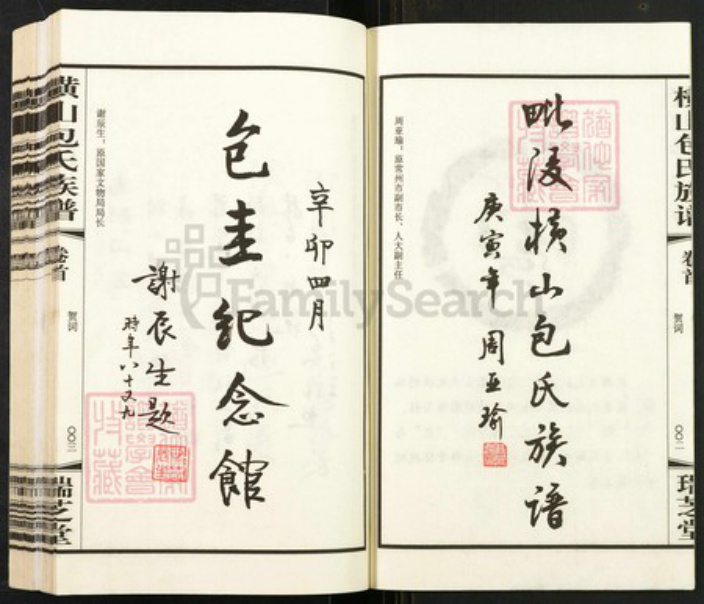 横山包氏族谱
卷首
贺词
〇〇二
瑞芝堂
毗陵横山包氏族谱
庚寅年 周亚瑜
周亚瑜，原常州市副市长、人大副主任
辛卯四月
包圭纪念館
謝辰生题
时年八十又九
谢辰生，原国家文物局局长
横山包氏族谱
卷首
贺词
〇〇三
瑞芝堂
FamilySearch